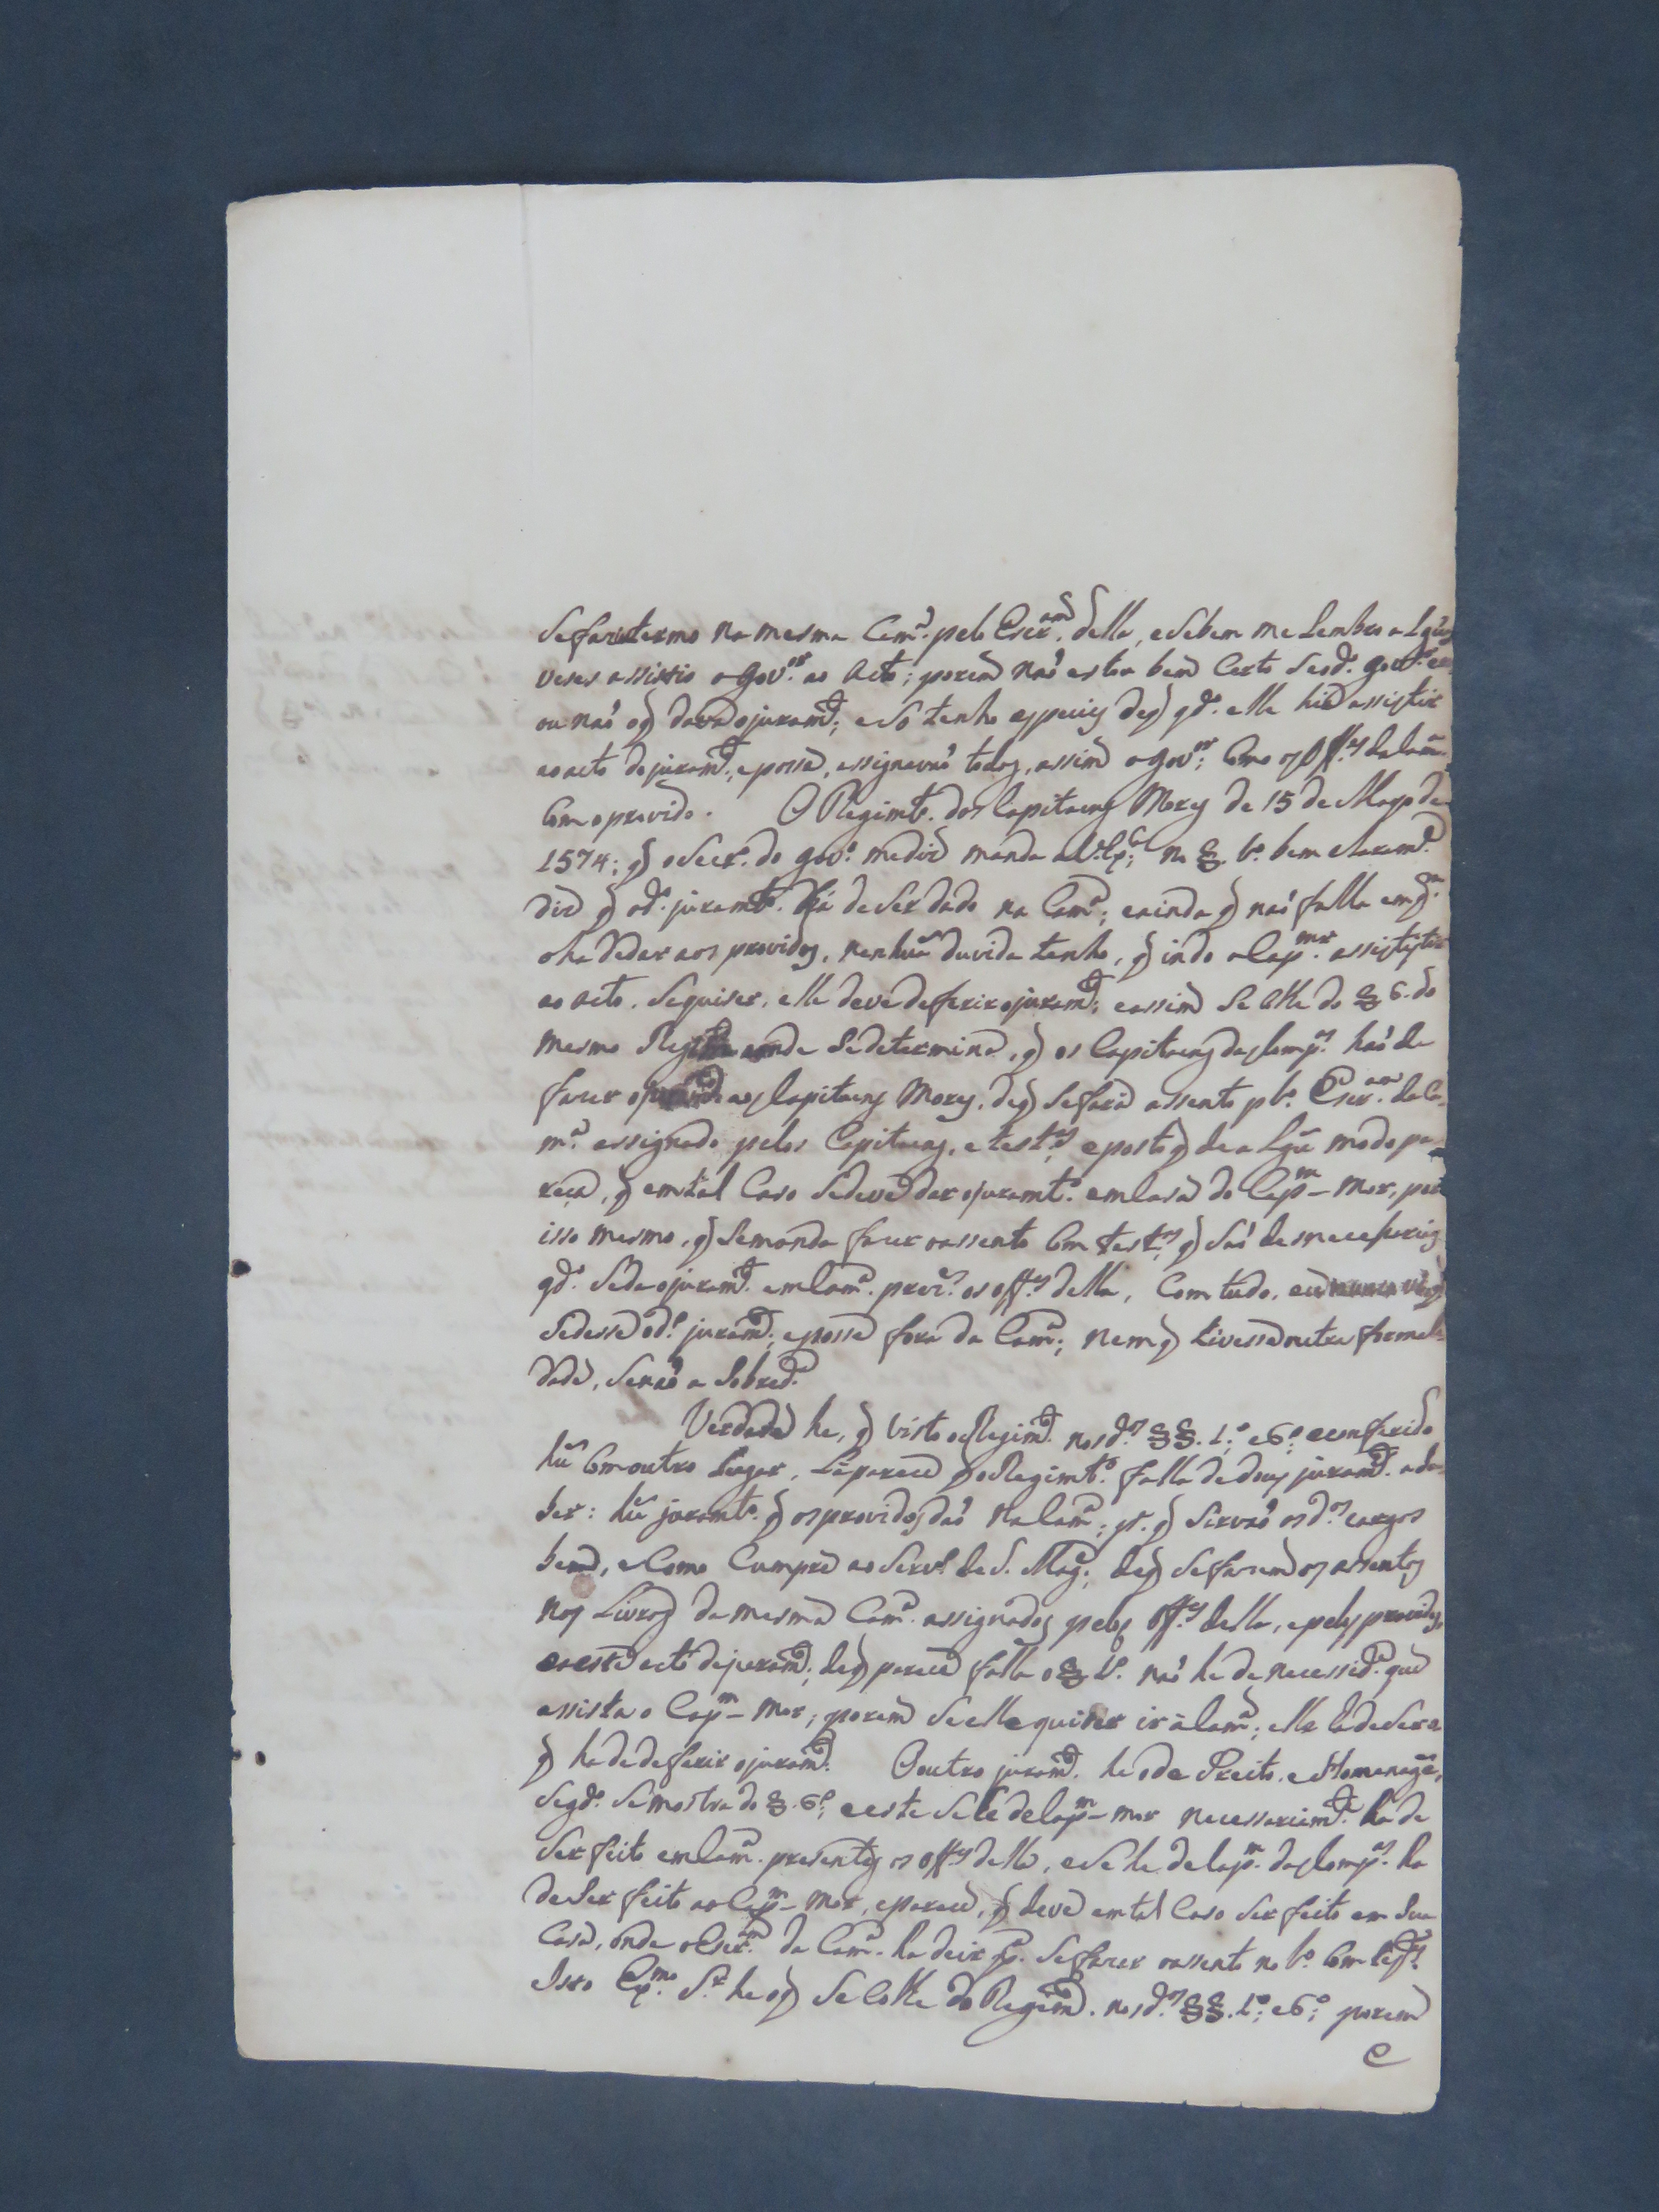 Se faz termo na mesma Camª. pelo Escramº. della, e se bem me Lembro alguãs
vezes assistio o Govor. ao Acto; porem não estou bem Certo se o dº. Govor. era
ou não o q̃ dava o juramtº.; e só tenho especies de q̃ qdº. elle hia assistir
ao acto do juramtº., e posse, assignavão todos, assim o Govor.; Como os Offes. da Camª.
Com o provido. O Regimtº. dos Capitaens Mores de 15 de Mayo de
1574; q̃ o Secrº. do Govº. me diz manda a V. Exª.; no §. 1º. bem claramtº.
diz q̃ o dº. juramtº. há de Ser dado na Camª.; e ainda q̃ não falla em qm.
o ha de dar aos providos, nenhuã duvida tenho, q̃ indo o Capmor. assistir
ao acto, Se quiser, elle deve deferir o juramtº.; e assim Se colhe do § 6. do
mesmo Regimtº. aonde Se determina, q̃ os Capitaens das Compªs. hão de
fazer o juramtº. aos Capitaens Mores, de q̃ Se fará assento plº. Escram. da Ca-
mª. assignado pelos Capitaens, e testªs. e posto q̃ de algũ modo pa-
reça, q̃ em tal Caso Se deve dar o juramtº. em Casa do Capm-Mor, por
isso mesmo, q̃ Se manda fazer o assento Com testªs. q̃ São desnecessarias
qdº. Se da o juramtº. em Camª. prezes. os offes. della, Com tudo, eu nunca vi q̃
Se desse o dº. juramtº., e posse fora da Camª.; nem q̃ tivesse outra formali-
dade, Senão a Sobredª.
Verdade he, q̃ visto o Regimtº. nos dºs. §§. 1º.; e 6º.; e conferido
hũ Com outro Lugar, Lá parece q̃ o Regimtº. falla de dous juramtºs. a Sa-
ber: hũ juramtº. q̃ os providos dão na Camª.; pª. q̃ Sirvão os dºs. cargos
bem, e Como Cumpre ao Servº. de S. Magº.; de q̃ Se fazem os assentos
nos Livros da mesma Camª. assignados pelos Offes. della, e pelos providos,
e a este acto de juramtº.; de q̃ parece falla o § 1º. não he de necessidª. que
assista o Capm-Mor; porem Se elle quiser ir á Camª.; elle ha de Ser o
q̃ ha de deferir o juramtº. O outro juramtº. he o de Preito, e Homenagẽ,
Segdº. Se mostra do §. 6º.; e este Se he de Capm-mor necessariamtº. ha de
Ser feito em Camª. presentes os offes. della, e Se he de Capm. das Compªs. ha
de Ser feito ao Capm-Mor, e parece, q̃ deve em tal Caso Ser feito em Sua
Casa, onde o Escrm. da Camª. ha de ir pª. Se fazer o assento no Lº. Com testªs.
Isto Exmo. Sr. he o q̃ Se Colhe do Regimtº. nos dºs. §§. 1º.; e 6º.; porem
e